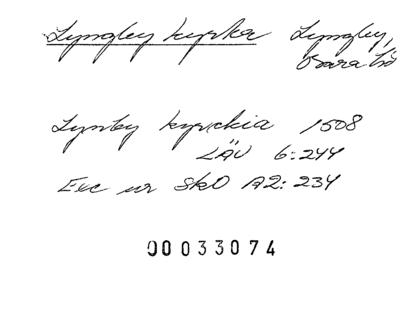 Lyngby kyrka Lyngby,
Bara hd
Lynby kyrckia 1508
LÄU 6:244
Exc ur SkO A2: 234
00033074